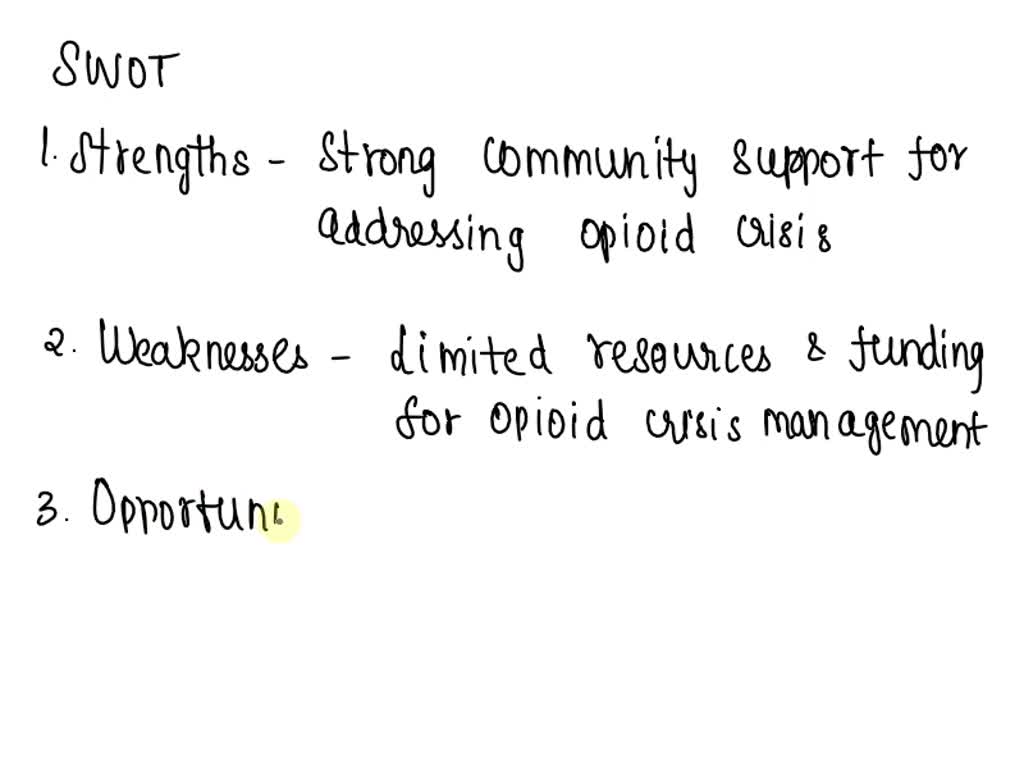 SWOT
1. Strengths - Strong community support for
addressing opioid crisis
2. Weaknesses - Limited resources & funding
for opioid crisis management
3. Opportuni